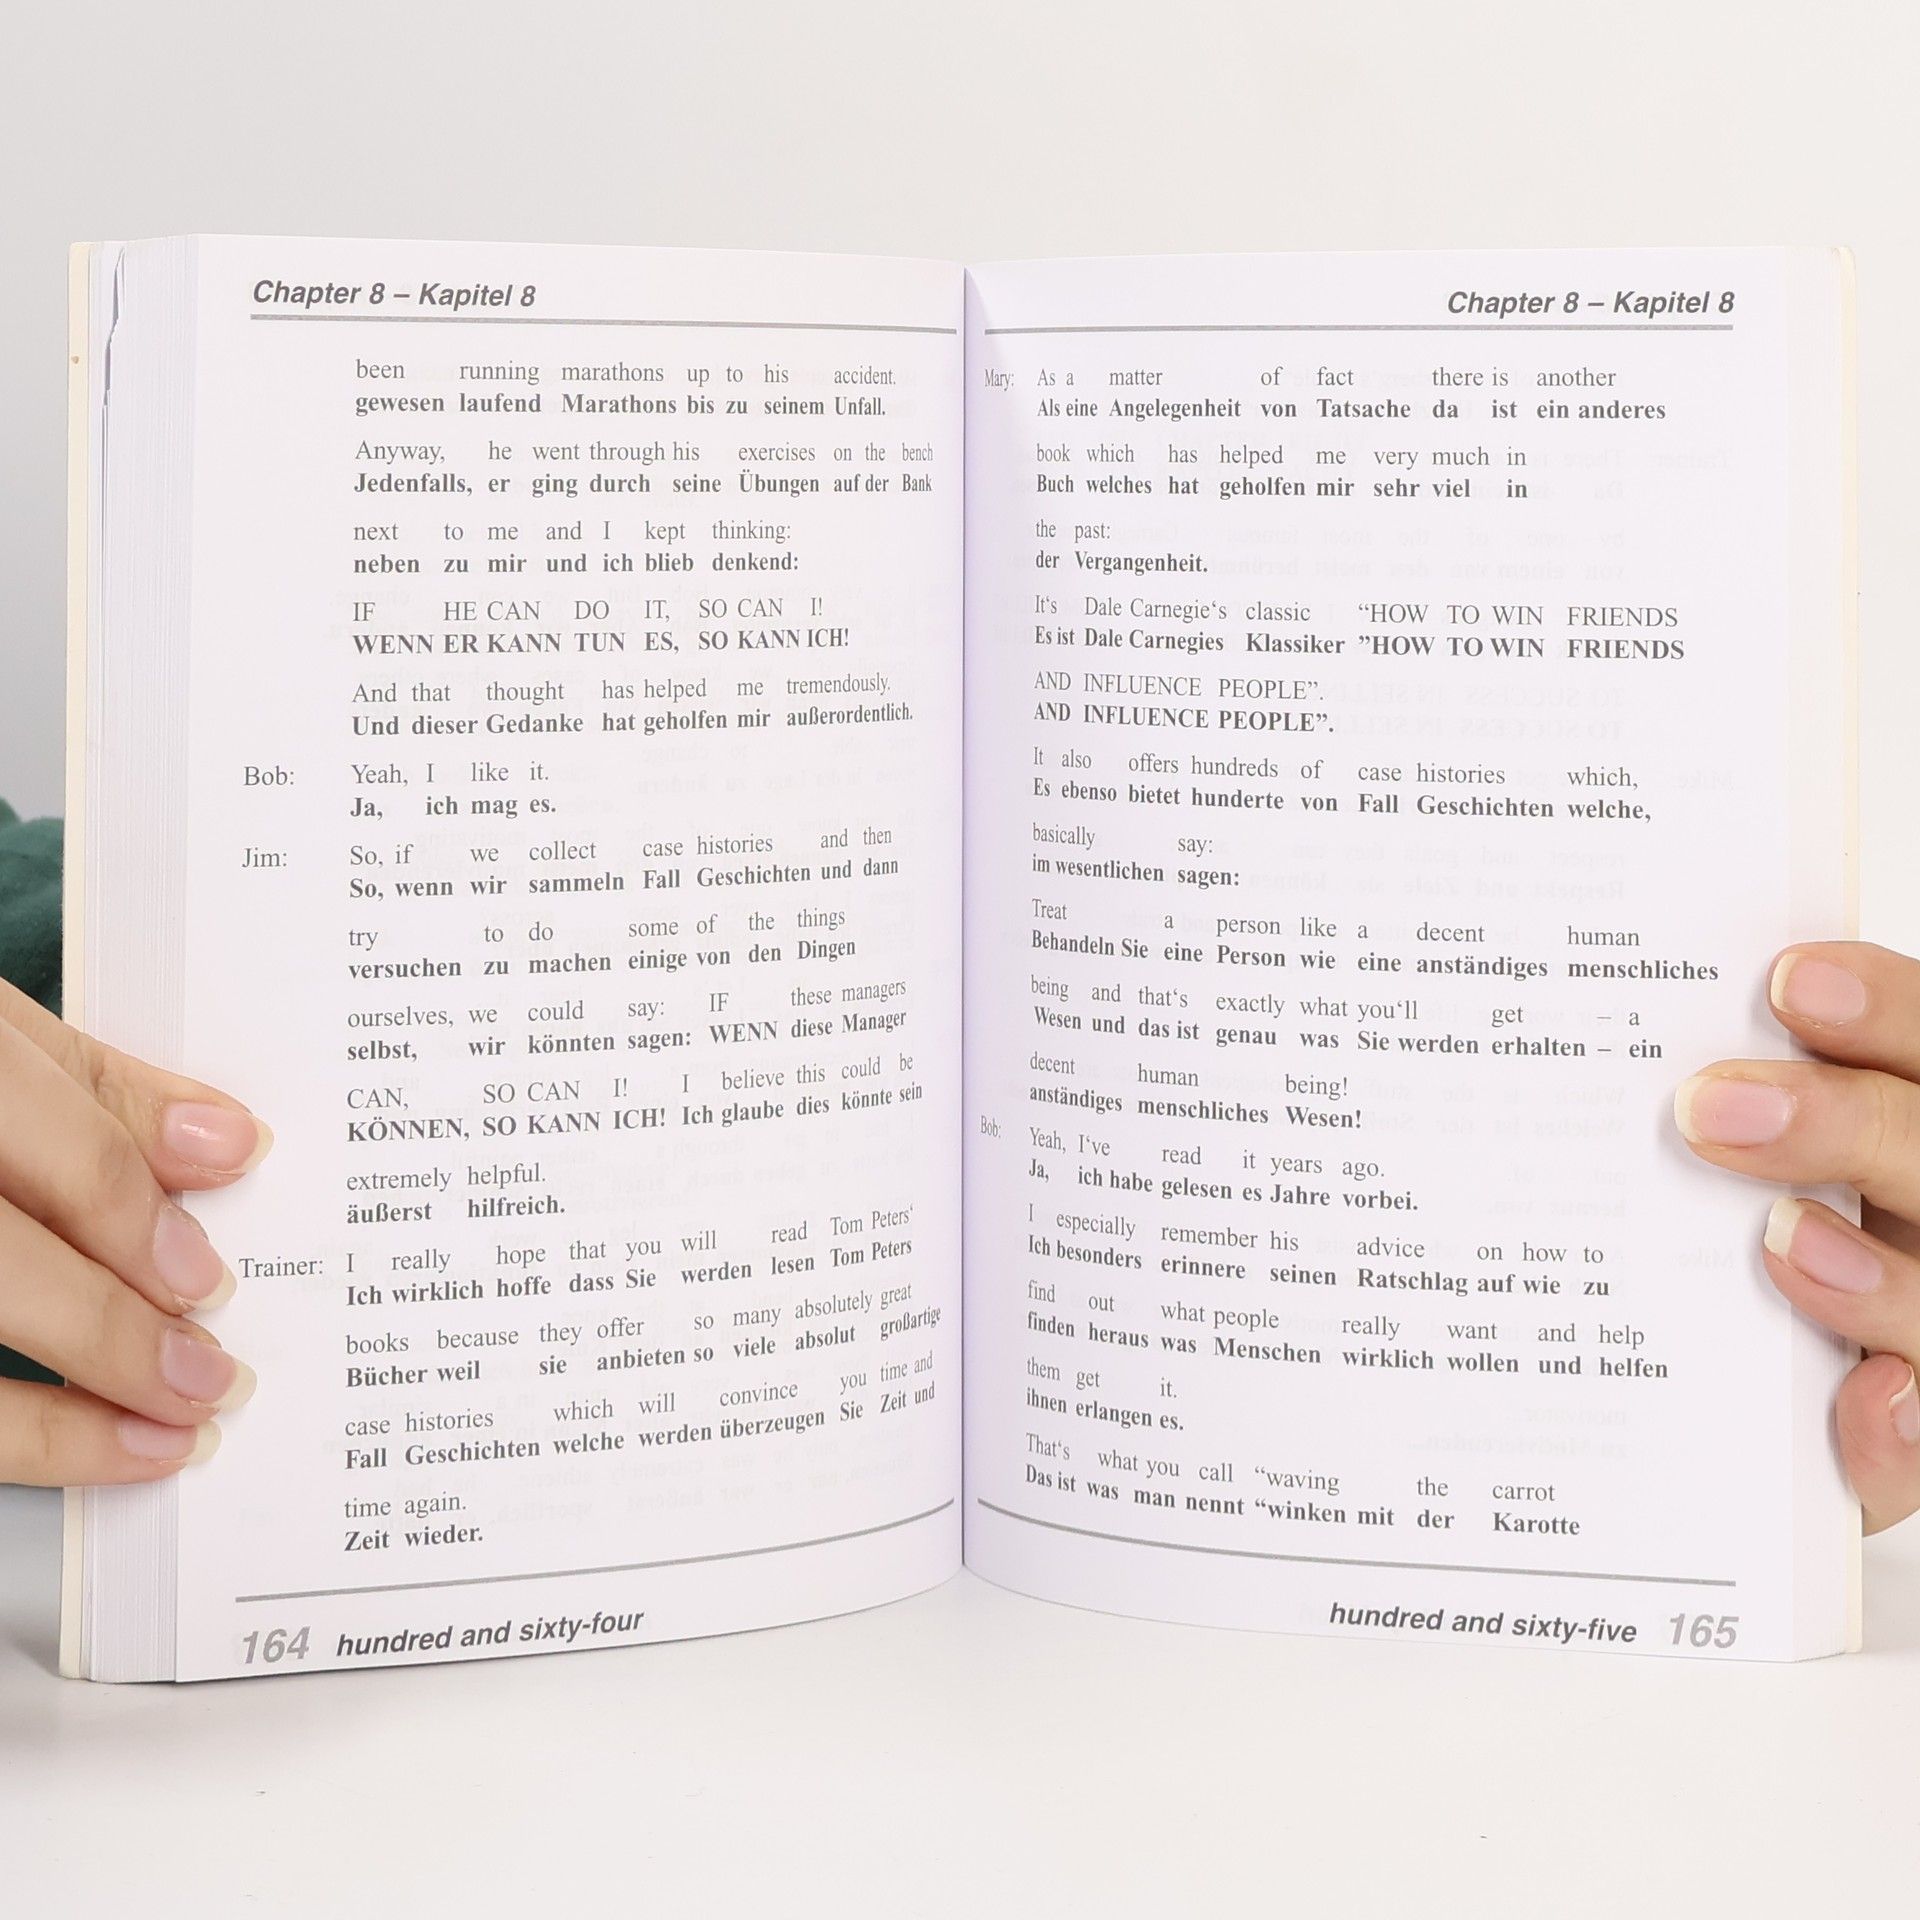 Chapter 8 – Kapitel 8
been running marathons up to his accident.
gewesen laufend Marathons bis zu seinem Unfall.
Anyway, he went through his exercises on the bench
Jedenfalls, er ging durch seine Übungen auf der Bank
next to me and I kept thinking:
neben zu mir und ich blieb denkend:
IF HE CAN DO IT, SO CAN I!
WENN ER KANN TUN ES, SO KANN ICH!
And that thought has helped me tremendously.
Und dieser Gedanke hat geholfen mir außerordentlich.
Bob: Yeah, I like it.
Ja, ich mag es.
Jim: So, if we collect case histories and then
So, wenn wir sammeln Fall Geschichten und dann
try to do some of the things
versuchen zu machen einige von den Dingen
ourselves, we could say: IF these managers
selbst, wir könnten sagen: WENN diese Manager
CAN, SO CAN I! I believe this could be
KÖNNEN, SO KANN ICH! Ich glaube dies könnte sein
extremely helpful.
äußerst hilfreich.
Trainer: I really hope that you will read Tom Peters‘
Ich wirklich hoffe dass Sie werden lesen Tom Peters
books because they offer so many absolutely great
Bücher weil sie anbieten so viele absolut großartige
case histories which will convince you time and
Fall Geschichten welche werden überzeugen Sie Zeit und
time again.
Zeit wieder.
164 hundred and sixty-four
Chapter 8 – Kapitel 8
Mary: As a matter of fact there is another
Als eine Angelegenheit von Tatsache da ist ein anderes
book which has helped me very much in
Buch welches hat geholfen mir sehr viel in
the past:
der Vergangenheit.
It's Dale Carnegie‘s classic “HOW TO WIN FRIENDS
Es ist Dale Carnegies Klassiker ”HOW TO WIN FRIENDS
AND INFLUENCE PEOPLE”.
AND INFLUENCE PEOPLE”.
It also offers hundreds of case histories which,
Es ebenso bietet hunderte von Fall Geschichten welche,
basically say:
im wesentlichen sagen:
Treat a person like a decent human
Behandeln Sie eine Person wie eine anständiges menschliches
being and that‘s exactly what you‘ll get – a
Wesen und das ist genau was Sie werden erhalten – ein
decent human being!
anständiges menschliches Wesen!
Bob: Yeah, I‘ve read it years ago.
Ja, ich habe gelesen es Jahre vorbei.
I especially remember his advice on how to
Ich besonders erinnere seinen Ratschlag auf wie zu
find out what people really want and help
finden heraus was Menschen wirklich wollen und helfen
them get it.
ihnen erlangen es.
That‘s what you call “waving the carrot
Das ist was man nennt “winken mit der Karotte
hundred and sixty-five 165